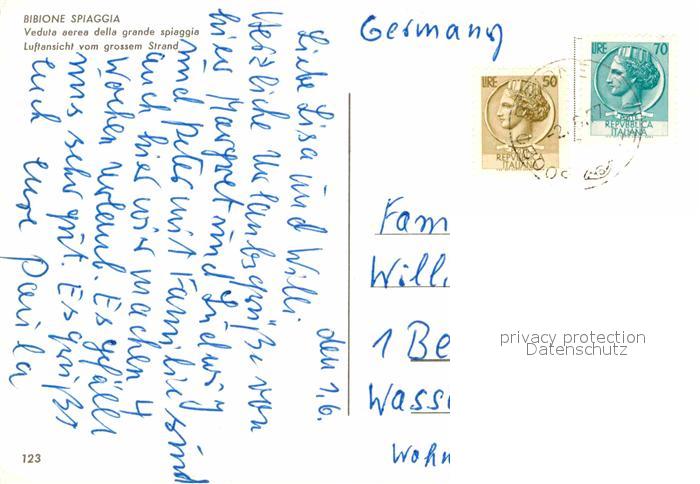 BIBIONE SPIAGGIA
Veduta aerea della grande spiaggia
Luftansicht vom grossem Strand
den 1.6.
Liebe Lisa und Willi.
Herzliche Urlaubsgrüße von
hier Margret und Ludwig
und Peter mit Familie sind
auch hier wir machen 4
Wochen Urlaub. Es gefällt
uns sehr gut. Es grüßt
euch eure Paula
123
Germany
LIRE 50
REPVBBLICA
ITALIANA
LIRE 70
REPVBBLICA
ITALIANA
Fam
Will.
1 Be
Wass
Wohn
privacy protection
Datenschutz